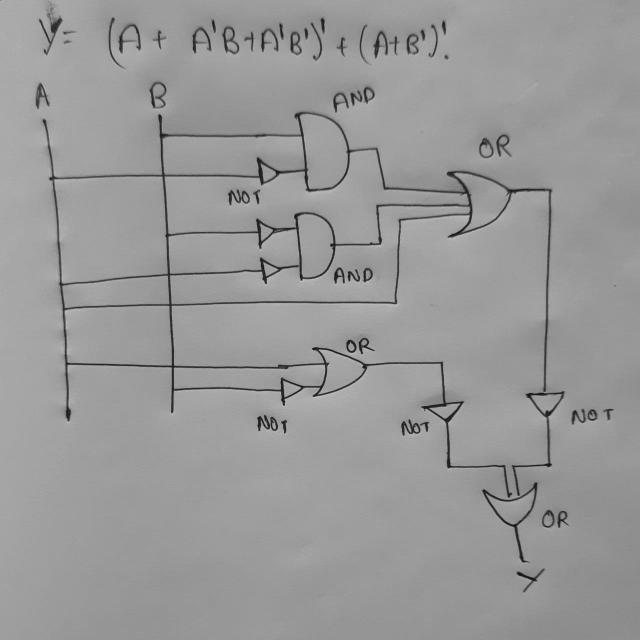 Y= (A + A'B+A'B')' + (A+B')'.
A B
AND
OR
NOT
AND
OR
NOT
NOT
NOT
OR
Y